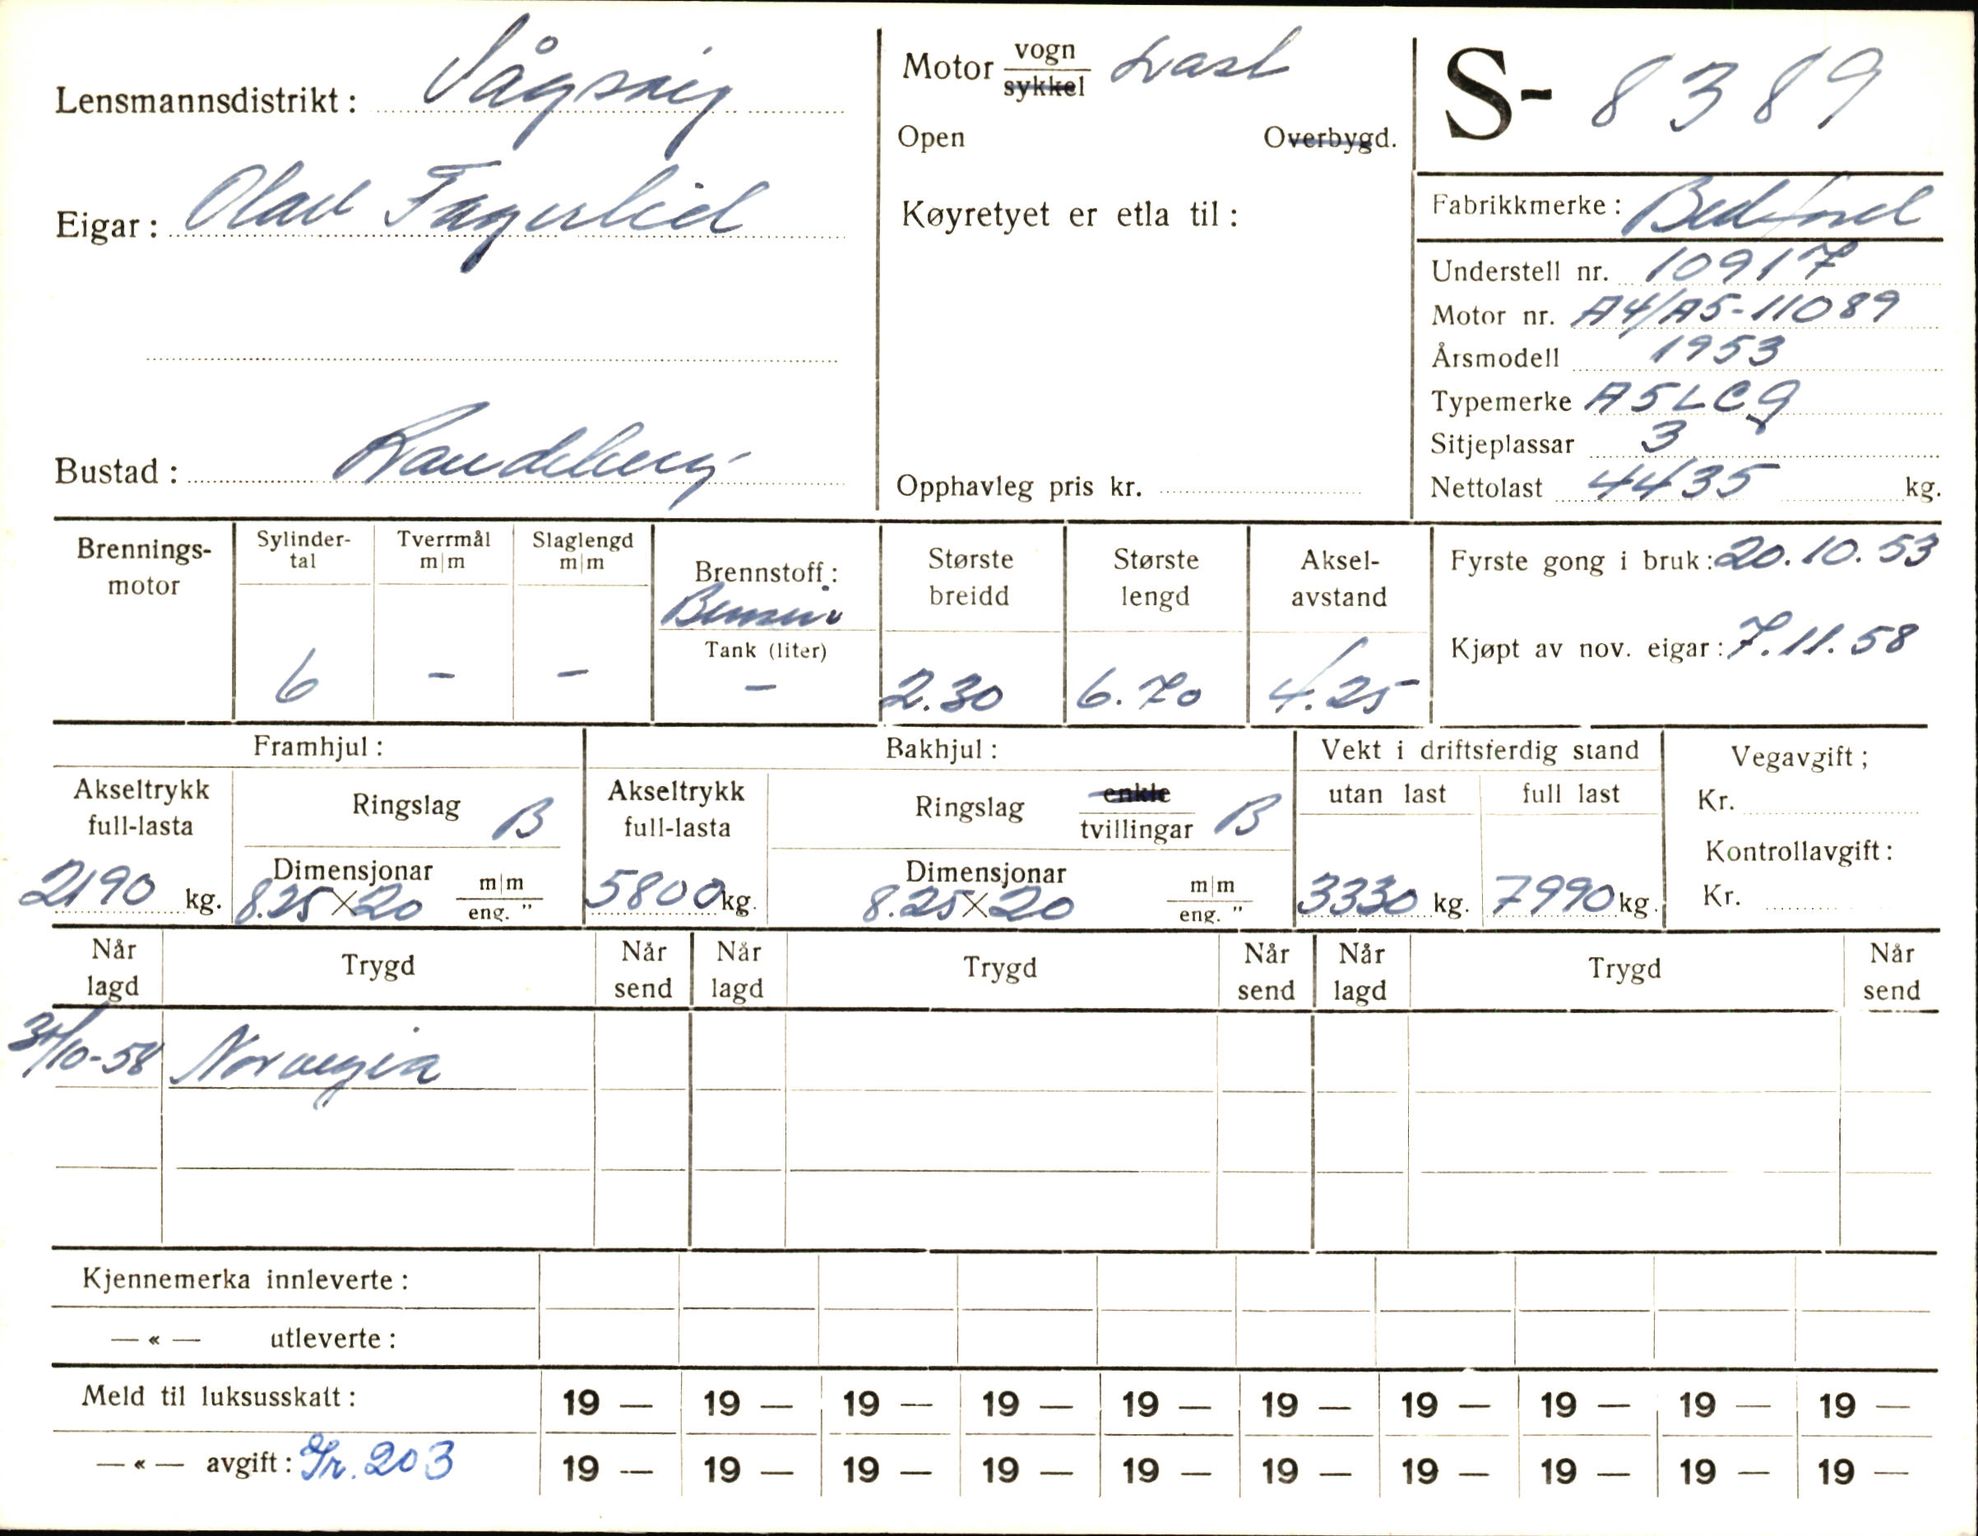 Lensmannsdistrikt: Vågsøy
Eigar: Olav Fagerlid
Bustad: Raudeberg
Motor vogn Last
sykkel
Open Overbygd.
Køyretyet er etla til:
Opphavleg pris kr.
S- 8389
Fabrikkmerke: Bedford
Understell nr. 10917
Motor nr. A4/A5-11089
Årsmodell 1953
Typemerke A5LC9
Sitjeplassar 3
Nettolast 4435 kg.
Brennings-
motor
Sylinder-
tal
6
Tverrmål
m|m
-
Slaglengd
m|m
-
Brennstoff:
Bensin
Tank (liter)
-
Største
breidd
2.30
Største
lengd
6.70
Aksel-
avstand
4.25
Fyrste gong i bruk: 20.10.53
Kjøpt av nov. eigar: 7.11.58
Framhjul:
Akseltrykk
full-lasta
2190 kg.
Ringslag B
Dimensjonar m|m
8.25×20 eng. "
Bakhjul:
Akseltrykk
full-lasta
5800 kg.
Ringslag enkle
tvillingar B
Dimensjonar m|m
8.25×20 eng. "
Vekt i driftsferdig stand
utan last full last
3330 kg. 7990 kg.
Vegavgift;
Kr.
Kontrollavgift:
Kr.
Når Trygd Når Når Trygd Når Når Trygd Når
lagd send lagd send lagd send
/10-58 Norvegia
Kjennemerka innleverte:
— « — utleverte:
Meld til luksusskatt: 19 — 19 — 19 — 19 — 19 — 19 — 19 — 19 — 19 — 19 —
— « — avgift: Gr. 203 19 — 19 — 19 — 19 — 19 — 19 — 19 — 19 — 19 — 19 —